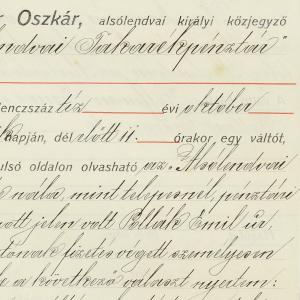 r. Oszkár, alsólendvai királyi közjegyző
ndvai Takarékpénztár"
lenczszáz tíz évi október
napján, dél előtt 11. órakor egy váltót,
ulsó oldalon olvasható az „Alsólendvai
nála, mint telepesnél, pénztári
ott jelen volt Pollák Emil úr,
tonak fizetés végett személyesen
e a következő választ nyertem: